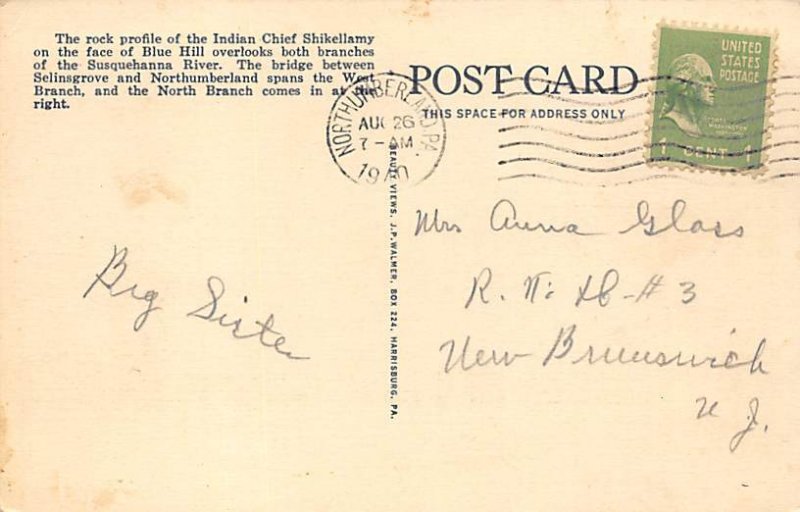 The rock profile of the Indian Chief Shikellamy
on the face of Blue Hill overlooks both branches
of the Susquehanna River. The bridge between
Selinsgrove and Northumberland spans the West
Branch, and the North Branch comes in at the
right.
POST CARD
THIS SPACE FOR ADDRESS ONLY
NORTHUMBERLAND, PA.
AUG 26
7-AM
1940
UNITED
STATES
POSTAGE
GEORGE
WASHINGTON
1 CENT 1
BEAUTY VIEWS, J.P. WALMER, BOX 224, HARRISBURG, PA.
Big Sister
Mrs Anna Glass
R. # 3
New Brunswick
N J.